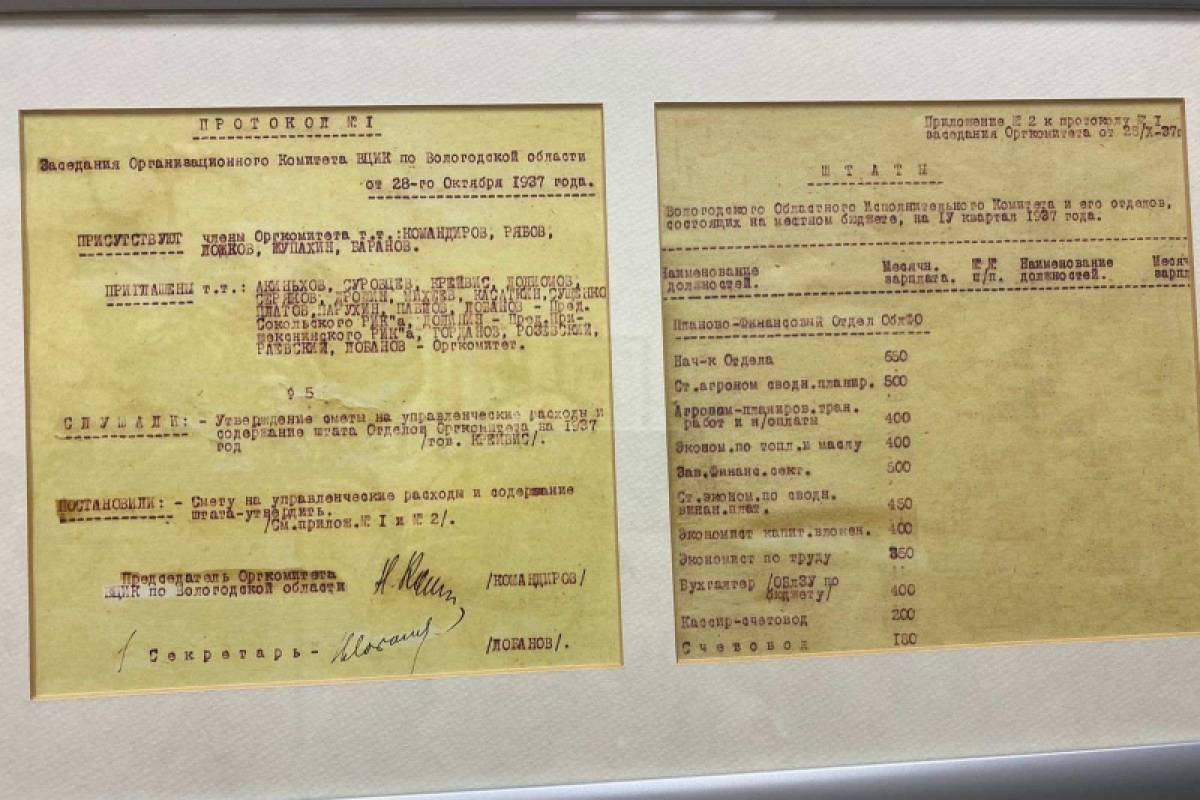 ПРОТОКОЛ № I
Заседания Организационного Комитета ВЦИК по Вологодской области
от 28-го Октября 1937 года.
ПРИСУТСТВУЮТ члены Оргкомитета т.т.:КОМАНДИРОВ, РЯБОВ,
ЛОШКОВ, ЖУПАХИН, БАРАНОВ.
ПРИГЛАШЕНЫ т.т.: АКИНЬХОВ, СУРОВЦЕВ, КРЕЙВИС,
МАХЕЕВ, КАСАТКИН,СУЩЕНКО
ПЛАТОВ,ПАРУХИН, ПАВЛОВ, ЛОБАНОВ - Пред.
Сокольского РИК"а, - Пред.При-
шекснинского РИК"а, ГОРДАНОВ, РОЗЕВСКИЙ,
РАЕВСКИЙ, ЛОБАНОВ - Оргкомитет.
§ 5
СЛУШАЛИ: - Утверждение сметы на управленческие расходы и
содержание штата Отделов Оргкомитета на 1937
год /тов. КРЕЙВИС/.
ПОСТАНОВИЛИ: - Смету на управленческие расходы и содержание
штата-утвердить.
/См.прилож.№ I и № 2/.
Председатель Оргкомитета
ВЦИК по Вологодской области /КОМАНДИРОВ/
Секретарь- /ЛОБАНОВ/.
Приложение № 2 к протоколу № I
заседания Оргкомитета от 28/X-37г
ШТАТЫ
Вологодского Областного Исполнительного Комитета и его отделов,
состоящих на местном бюджете, на IУ квартал 1937 года.
Наименование должностей. Месячн. зарплата. №№ п/п. Наименование должностей. Месяч зарпл
Планово-Финансовый Отдел ОблФО
Нач-к Отдела 650
Ст.агроном сводн.планир. 500
Агроном-планиров.тран.
работ и н/оплаты 400
Эконом.по топл.и маслу 400
Зав.Финанс.сект. 500
Ст.эконом.по сводн.
винан.плат. 450
Экономист капит.вложен. 400
Экономист по труду 350
Бухгалтер /ОблЗУ по
бюджету/ 400
Кассир-счетовод 200
Счетовод 180